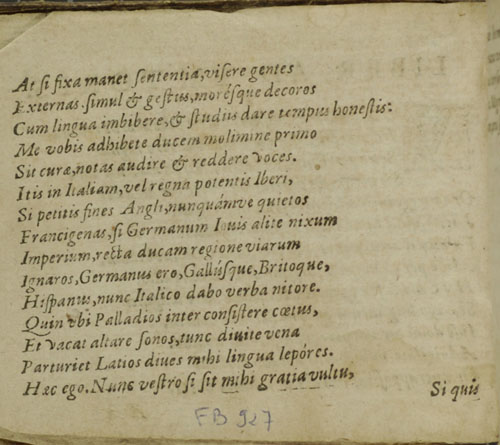 At si fixa manet sententia, visere gentes
Externas. simul & gestus, morésque decoros
Cum lingua imbibere, & studiis dare tempus honestis:
Me vobis adhibete ducem molimine primo
Sit curæ, notas audire & reddere voces.
Itis in Italiam, vel regna potentis Iberi,
Si petitis fines Angli, nunquámve quietos
Francigenas, si Germanum Iouis alite nixum
Imperium, recta ducam regione viarum
Ignaros, Germanus ero, Gallúsque, Britoque,
Hispanus, nunc Italico dabo verba nitore.
Quin vbi Palladios inter consistere cœtus,
Et vacat altare sonos, tunc diuite vena
Parturiet Latios diues mihi lingua lepóres.
Hæc ego. Nunc vestro si sit mihi gratia vultu,
Si quis
FB 927